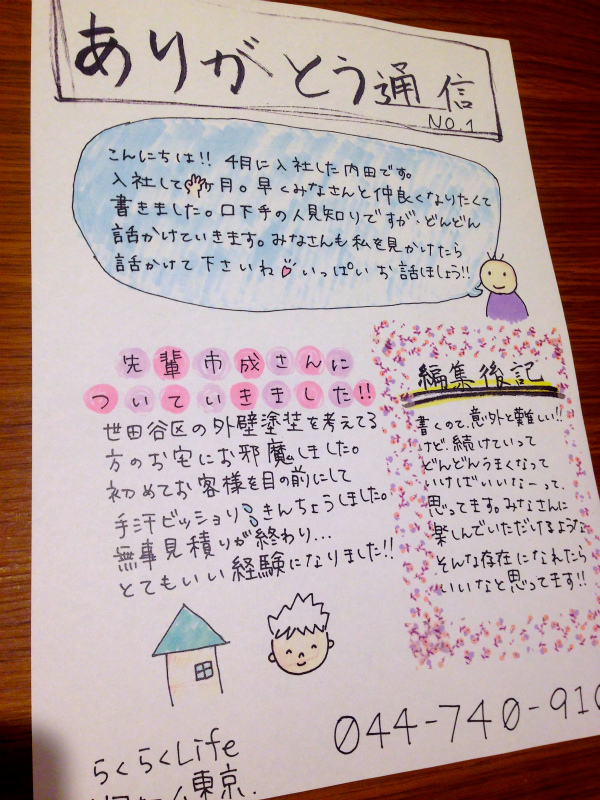 ありがとう通信
NO.1
こんにちは!! 4月に入社した内田です。
入社して ヶ月。早くみなさんと仲良くなりたくて
書きました。口下手の人見知りですが、どんどん
話かけていきます。みなさんも私を見かけたら
話かけて下さいね いっぱいお話ほしょう!!
先輩市成さんに
ついていきました!!
世田谷区の外壁塗装を考えてる
方のお宅にお邪魔しました。
初めてお客様を目の前にして
手汗ビッショリ きんちょうしました。
無事見積りが終わり...
とてもいい経験になりました!!
編集後記
書くのて、意外と難しい!!
けど、続けていって
どんどんうまくなって
いけばいいなーって、
思ってます。みなさんに
楽しんでいただけるような
そんな存在になれたら
いいなと思ってます!!
044-740-910
らくらくLife
東京.